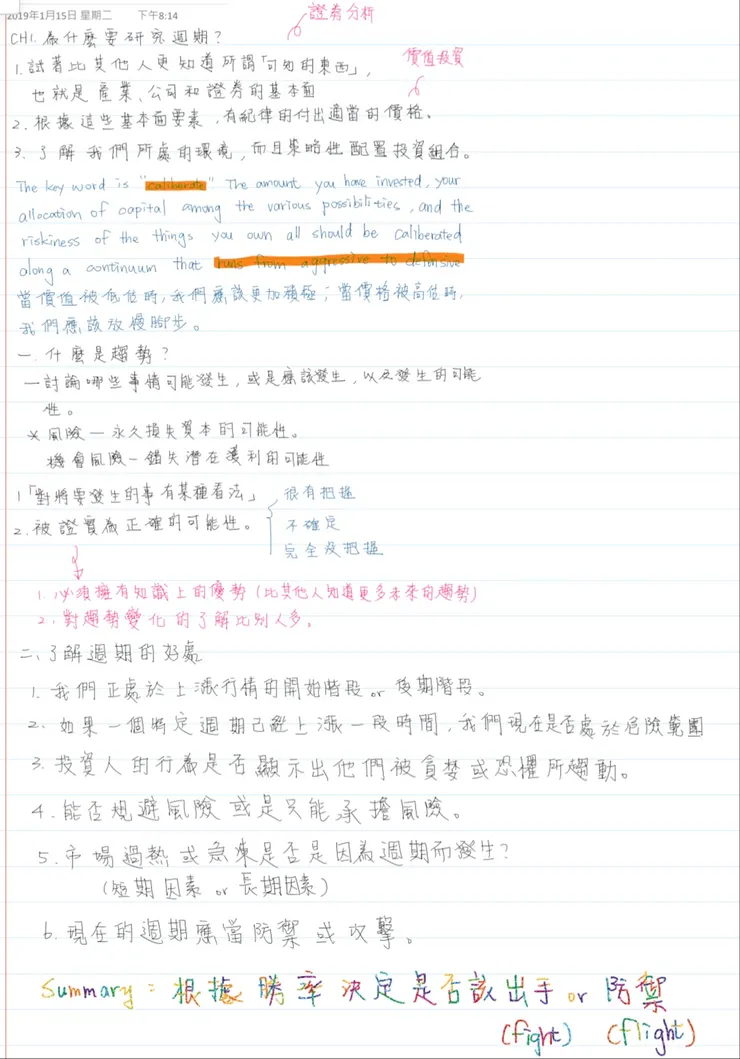 2019年1月15日 星期二 下午8:14
證券分析
CH1. 為什麼要研究週期？
1. 試著比其他人更知道所謂「可知的東西」,
價值投資
也就是產業、公司和證券的基本面
2. 根據這些基本面要素，有紀律的付出適當的價格。
3. 了解我們所處的環境，而且策略性配置投資組合。
The key word is "caliberate" The amount you have invested, your
allocation of capital among the various possibilities, and the
riskiness of the things you own all should be caliberated
along a continuum that runs from aggressive to defensive
當價值被低估時，我們應該更加積極；當價格被高估時，
我們應該放慢腳步。
一. 什麼是趨勢？
—討論哪些事情可能發生，或是應該發生，以及發生的可能
性。
※風險—永久損失資本的可能性。
機會風險—錯失潛在獲利的可能性
1「對將要發生的事有某種看法」
很有把握
2. 被證實為正確的可能性。
不確定
完全沒把握
1. 必須擁有知識上的優勢（比其他人知道更多未來的趨勢）
2. 對趨勢變化的了解比別人多。
二、了解週期的好處
1. 我們正處於上漲行情的開始階段 or 後期階段。
2. 如果一個特定週期已經上漲一段時間，我們現在是否處於危險範圍
3. 投資人的行為是否顯示出他們被貪婪或恐懼所趨動。
4. 能否規避風險或是只能承擔風險。
5. 市場過熱或急凍是否是因為週期而發生？
（短期因素 or 長期因素）
6. 現在的週期應當防禦或攻擊。
Summary: 根據勝率決定是否該出手 or 防禦
(fight) (flight)